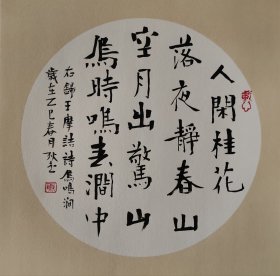 人閑桂花
落夜靜春山
空月出驚山
鳥時鳴春澗中
右錄王摩詰詩鳥鳴澗
歲在乙巳春月